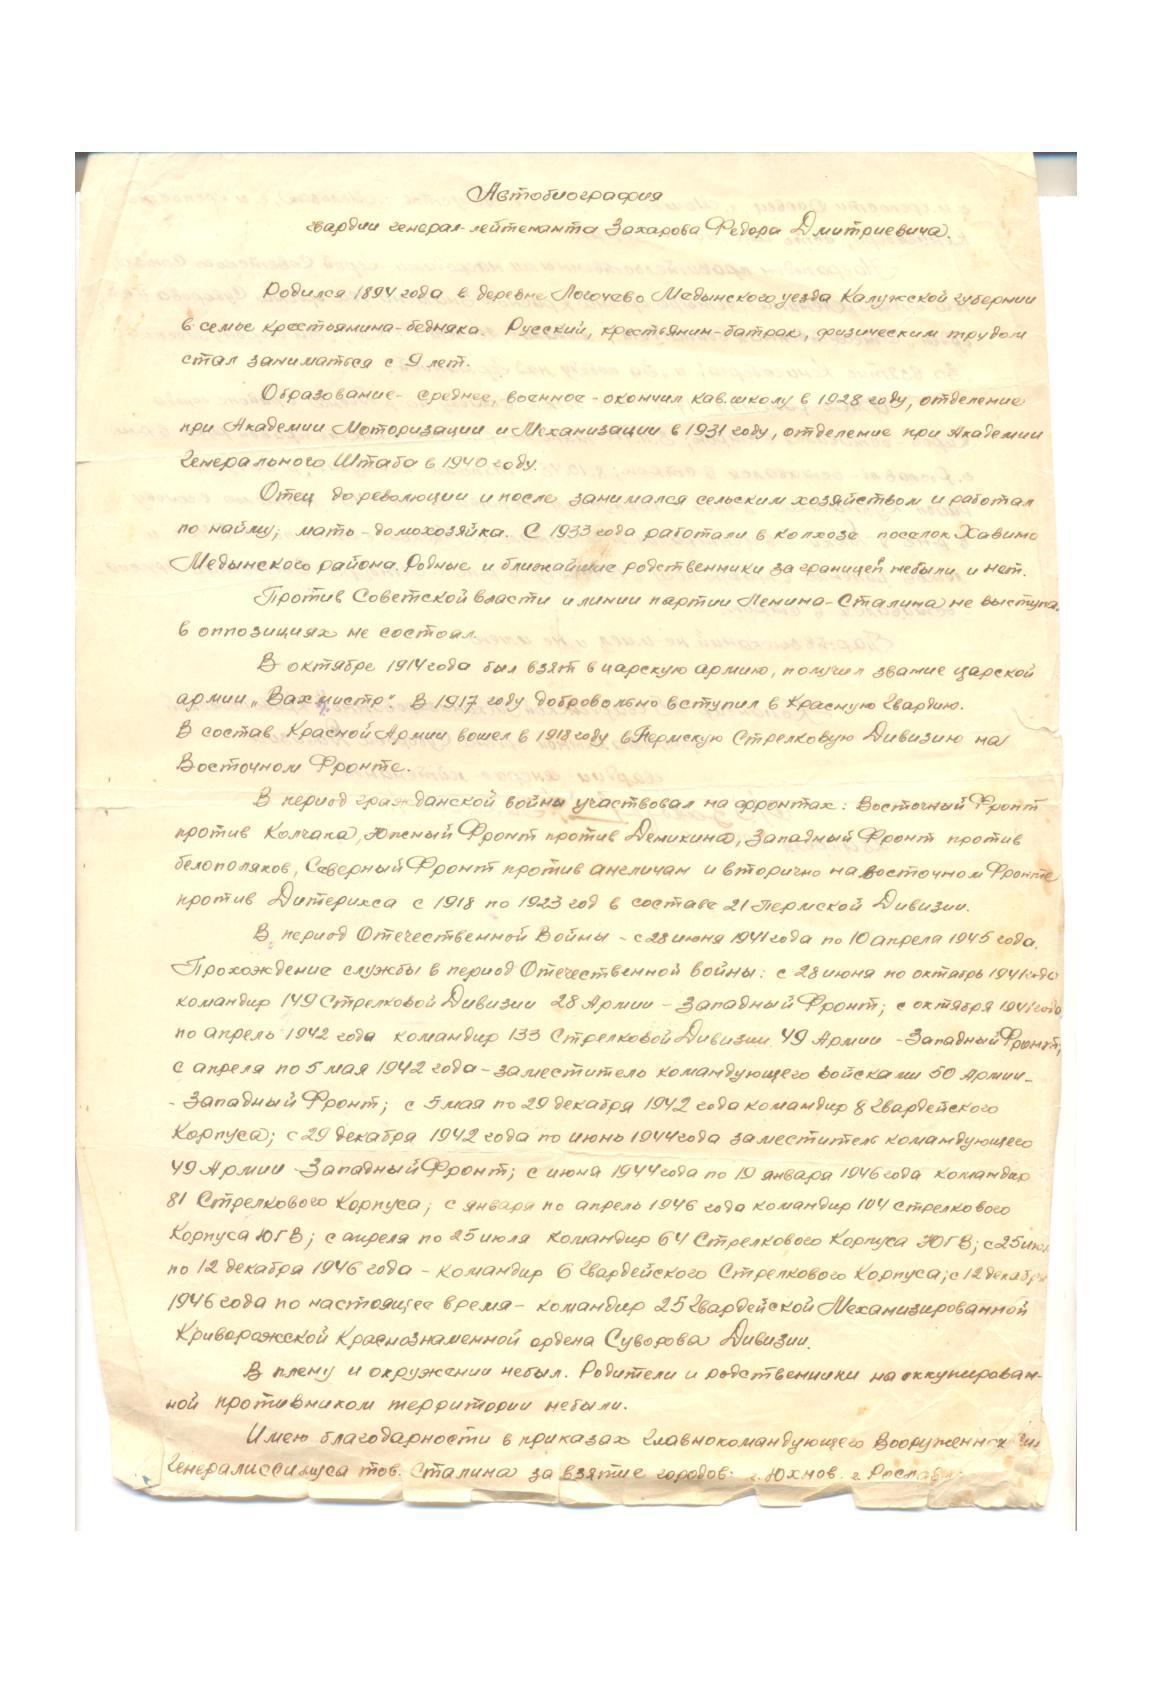 Автобиография
гвардии генерал-лейтенанта Захарова Федора Дмитриевича.
Родился 1894 года в деревне Логочево Медынского уезда Калужской губернии
в семье крестьянина-бедняка. Русский, крестьянин-батрак, физическим трудом
стал заниматься с 9 лет.
Образование- среднее, военное - окончил кав.школу в 1928 году, отделение
при Академии Моторизации и Механизации в 1931 году, отделение при Академии
Генерального Штаба в 1940 году.
Отец до революции и после занимался сельским хозяйством и работал
по найму; мать - домохозяйка. С 1933 года работали в колхозе поселок Хавино
Медынского района. Родные и ближайшие родственники за границей небыли и нет.
Против Советской власти и линии партии Ленина-Сталина не выступа.
в оппозициях не состоял.
В октябре 1914 года был взят в царскую армию, получил звание царской
армии „Вахмистр". В 1917 году добровольно вступил в Красную Гвардию.
В состав Красной Армии вошел в 1918 году в Пермскую Стрелковую Дивизию на
Восточном Фронте.
В период гражданской войны участвовал на фронтах: Восточный Фронт
против Колчака, Южный Фронт против Деникина, Западный Фронт против
белополяков, Северный Фронт против англичан и вторично на восточном Фронте
против Дитерихса с 1918 по 1923 год в составе 21 Пермской Дивизии.
В период Отечественной Войны - с 28 июня 1941 года по 10 апреля 1945 года.
Прохождение службы в период Отечественной войны: с 28 июня по октябрь 1941 года
командир 149 Стрелковой Дивизии 28 Армии - Западный Фронт; с октября 1941 года
по апрель 1942 года командир 133 Стрелковой Дивизии 49 Армии - Западный Фронт;
с апреля по 5 мая 1942 года - заместитель командующего войсками 50 Армии-
- Западный Фронт; с 5 мая по 29 декабря 1942 года командир 8 Гвардейского
Корпуса; с 29 декабря 1942 года по июнь 1944 года заместитель командующего
49 Армии - Западный Фронт; с июня 1944 года по 19 января 1946 года командир
81 Стрелкового Корпуса; с января по апрель 1946 года командир 104 стрелкового
Корпуса ЮГВ; с апреля по 25 июля командир 64 Стрелкового Корпуса ЮГВ; с 25 июл
по 12 декабря 1946 года - командир 6 Гвардейского Стрелкового Корпуса; с 12 декабря
1946 года по настоящее время - командир 25 Гвардейской Механизированной
Краснознаменной ордена Суворова Дивизии.
В плену и окружении небыл. Родители и родственники на оккупирован-
ной противником территории небыли.
Имею благодарности в приказах Главнокомандующего
Генералиссимуса тов. Сталина за взятие городов: г. Юхнов. г.